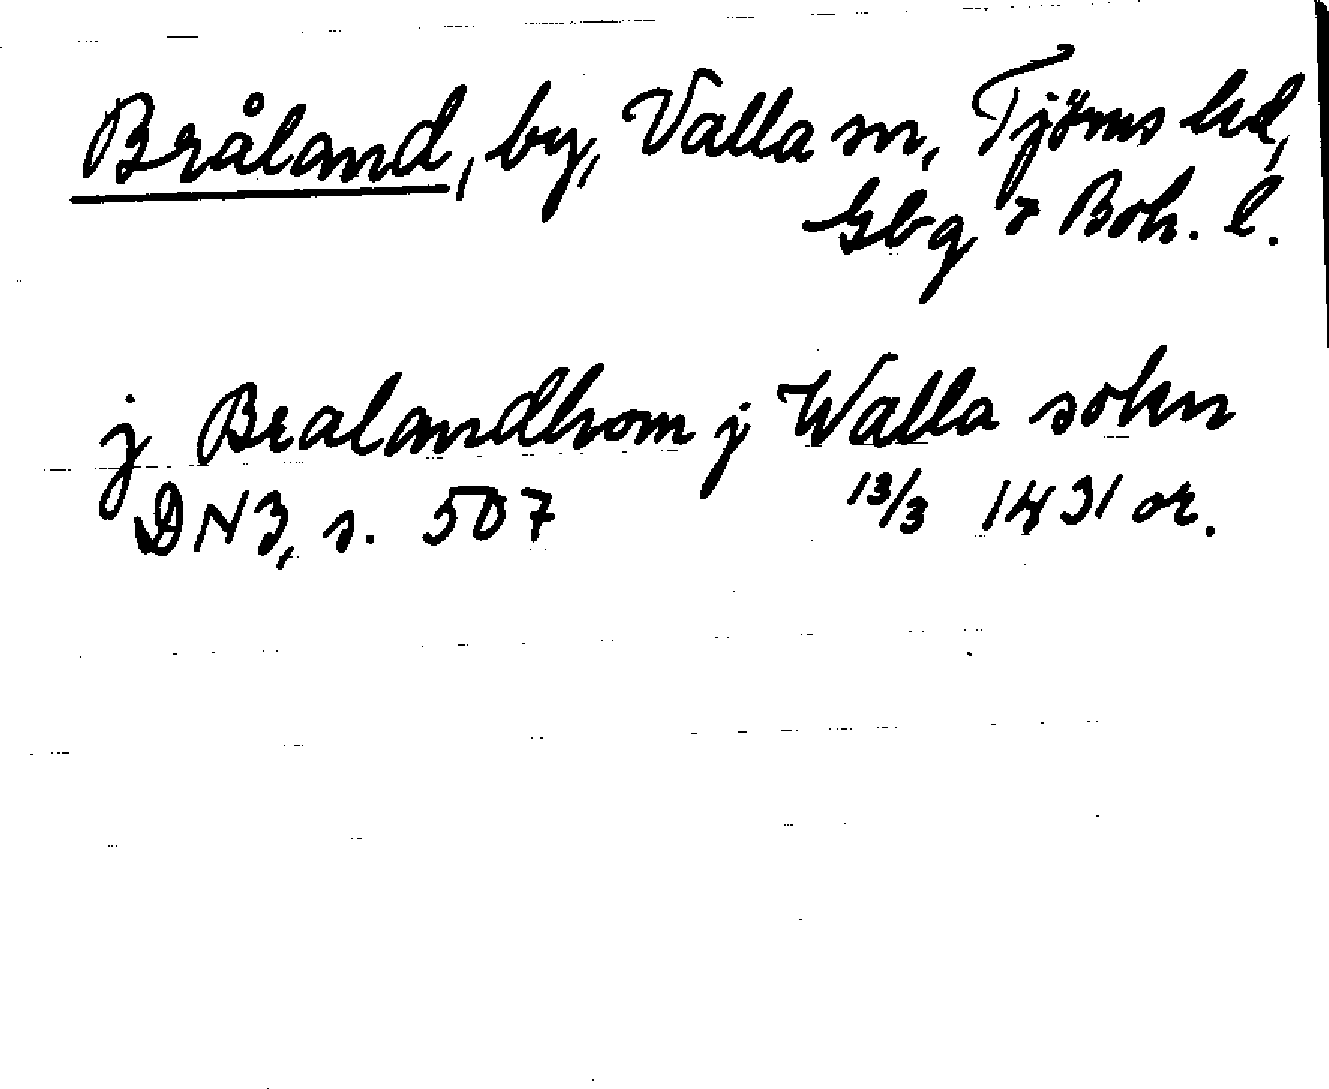 Bråland, by, Valla sn, Tjörns hd,
Gbg o Boh. l.
j Bralandhom j Walla sokn
DN 3, s. 507 13/3 1431 or.